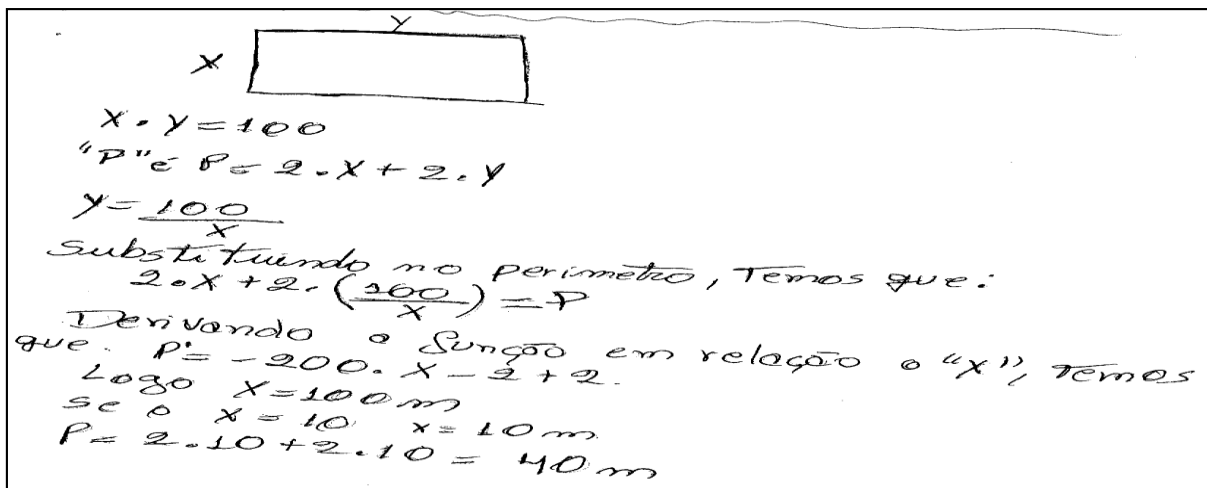 y
x
x . y = 100
"P" é P = 2 . x + 2 . y
y = 100/x
Substituindo no perimetro, Temos que:
2 . x + 2 . (100/x) = P
Derivando a função em relação a "x", Temos
que. P' = -200 . x - 2 + 2.
Logo x = 100m
se o x = 10 x = 10 m
P = 2 . 10 + 2 . 10 = 40 m